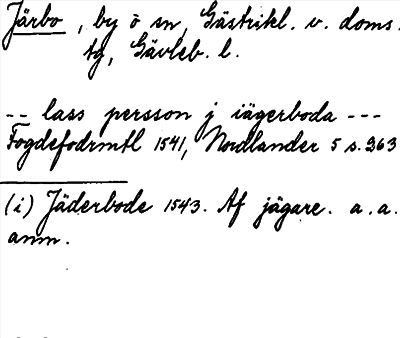 Järbo, by ö sn, Gästrikl. v. doms.
tg, Gävleb. l.
-- lass persson j iägerboda ---
Fogdefodrmtl 1541, Nordlander 5 s. 263
(i) Jäderbode 1543. Af jägare. a.a.
anm.